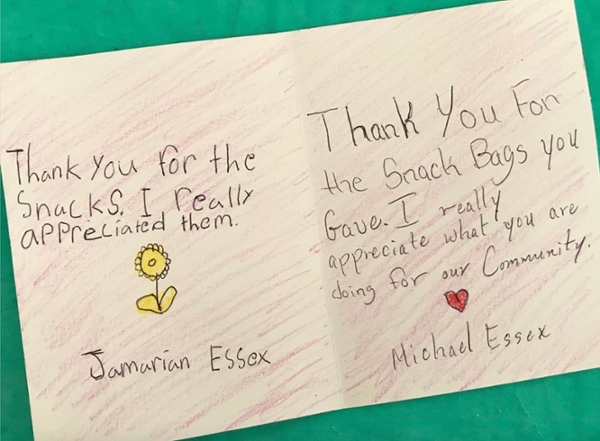 Thank you for the
Snacks. I really
appreciated them.
Jamarian Essex
Thank You For
the Snack Bags you
Gave. I really
appreciate what you are
doing for our Community.
Michael Essex